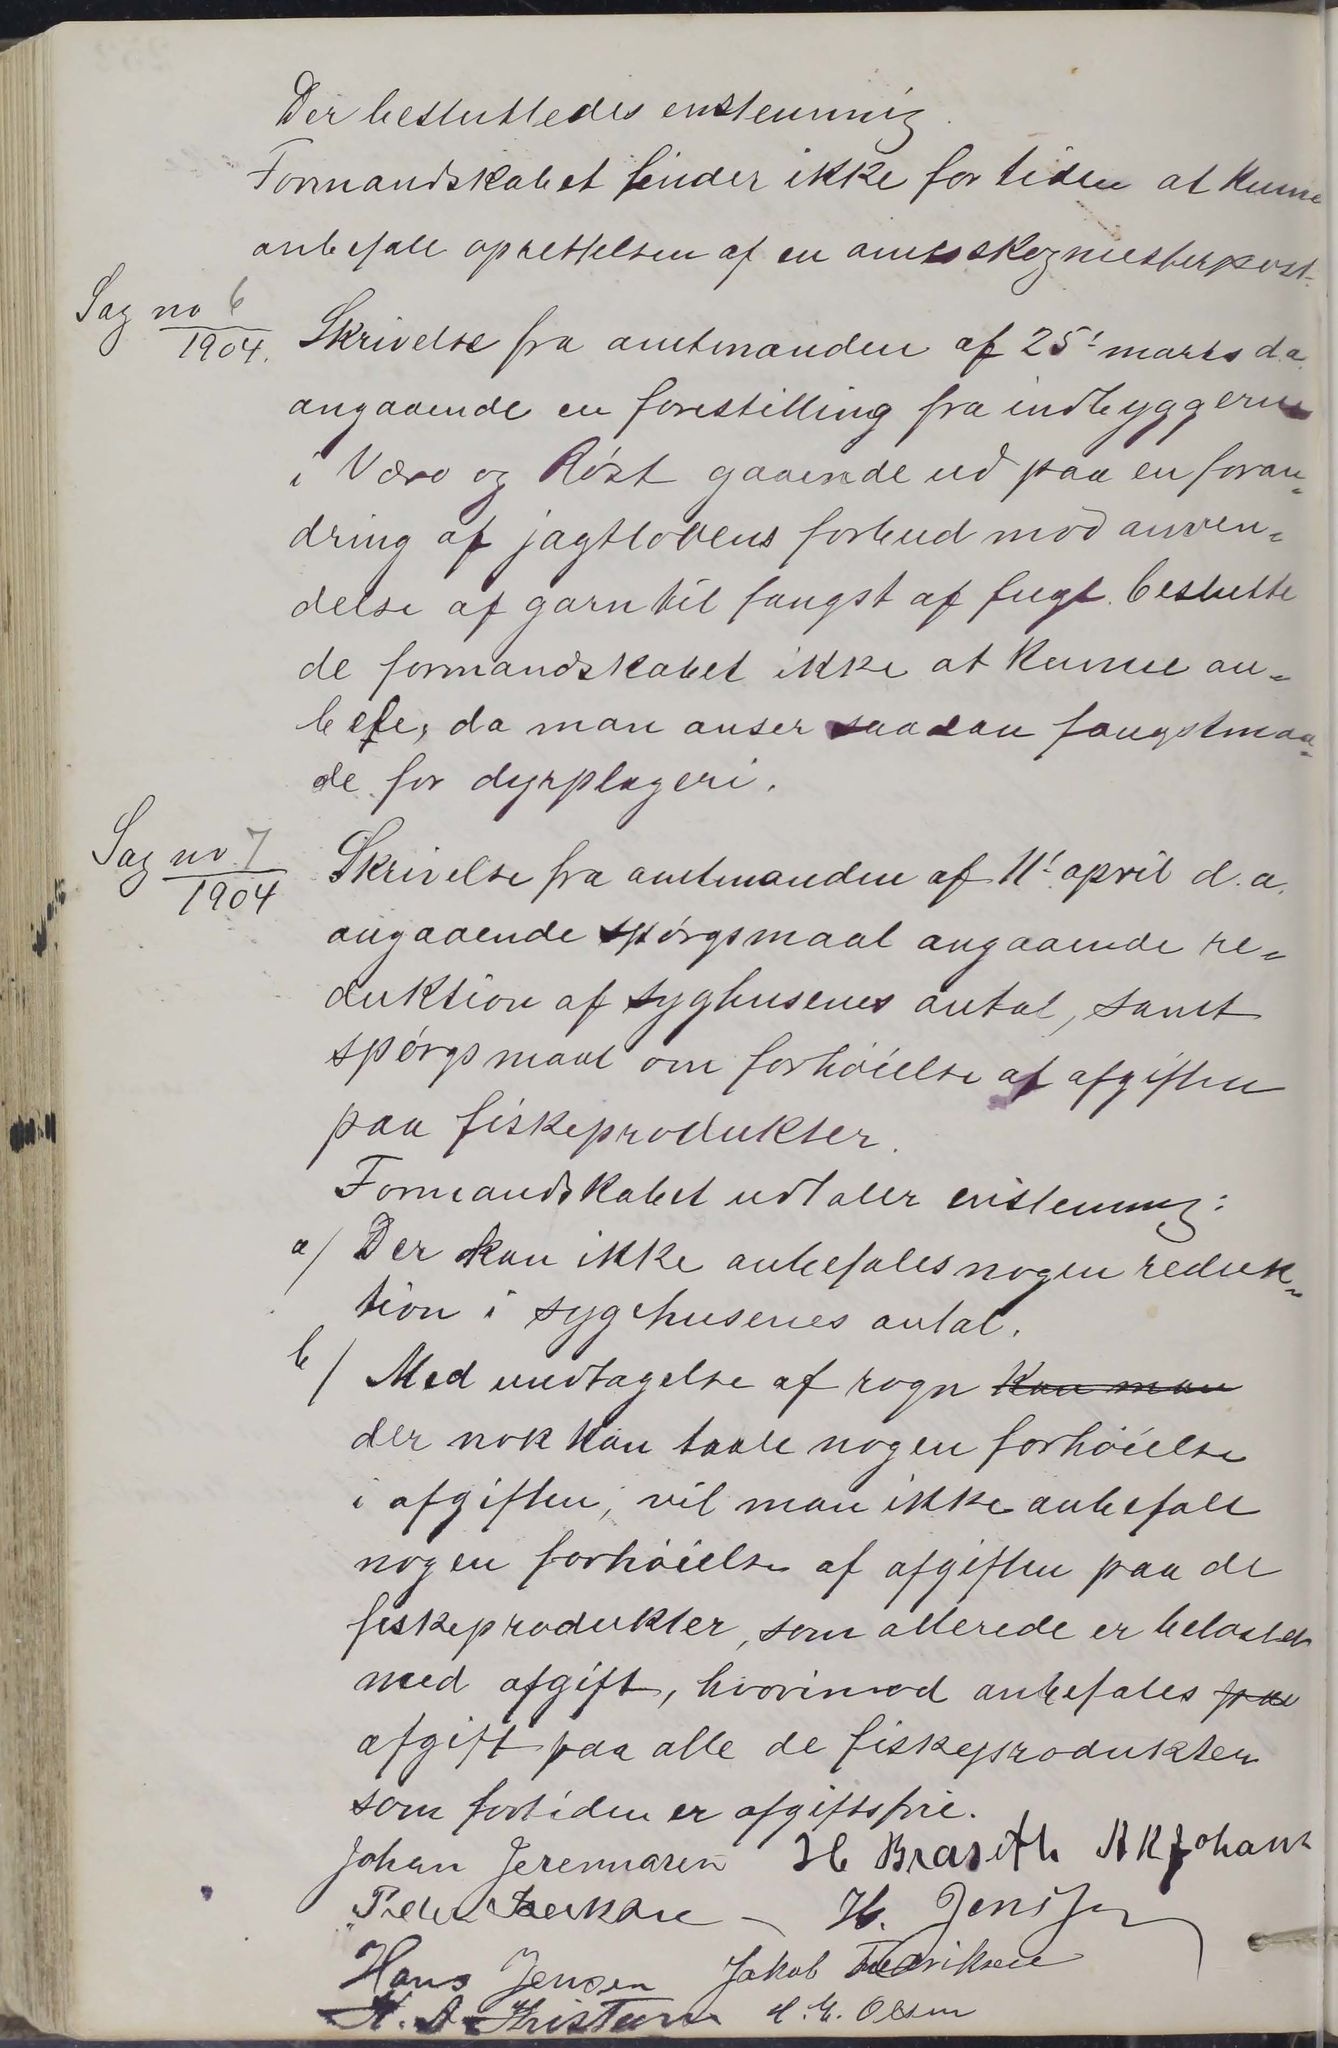 Der besluttedes enstemmig.
Formandskabet finder ikke for tiden at kunne
anbefale oprettelsen af en amtsskogmesterpost.
Sag no 6
1904.
Skrivelse fra amtmanden af 25' marts d.a.
angaaende en forestilling fra indbyggerne
i Værø og Røst gaaende ud paa en foran-
dring af jagtlovens forbud mod anven-
delse af garn til fangst af fugl. beslutte
de formandskabet ikke at kunne an-
befe, da man anser saadan fangstmaa-
de for dyrplageri.
Sag no 7
1904
Skrivelse fra amtmanden af 11' april d.a.
angaaende spørgsmaal angaaende re-
duktion af syghusenes antal, samt
spørgsmaal om forhøielse af afgiften
paa fiskeprodukter.
Formandskabet udtaler enstemmig:
a/ Der kan ikke anbefales nogen reduk-
tion i sygehusenes antal.
b/ Med undtagelse af rogn kan man
der nok kan taale nogen forhøielse
i afgiften, vil man ikke anbefale
nogen forhøielse af afgiften paa de
fiskeprodukter, som allerede er belastet
med afgift, hvorimod anbefales paa
afgift paa alle de fiskeprodukter
som fortiden er afgiftsfrie.
Johan Jeremiasen H Braseth A K Johans
Peder H. Jensen
Hans Jensen Jakob Fredriksen
K. A. Kristensen H. E. Olsen